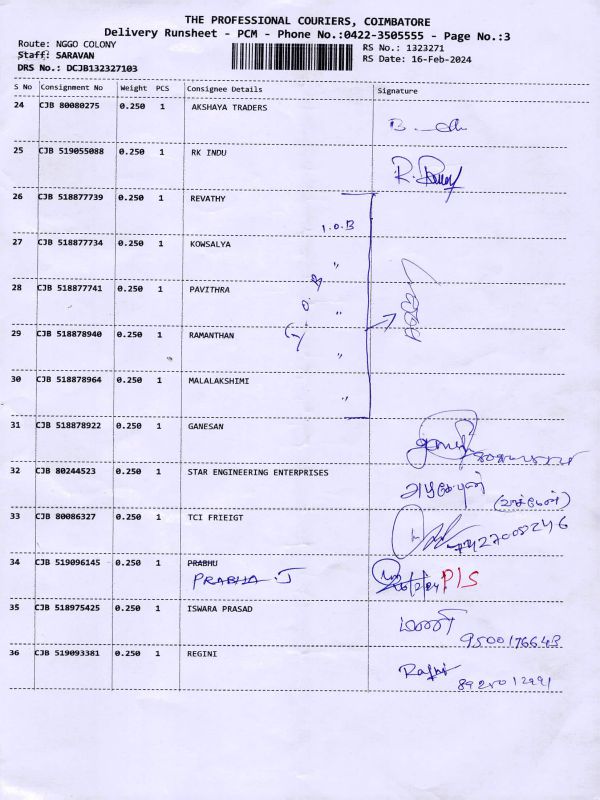 THE PROFESSIONAL COURIERS, COIMBATORE
Delivery Runsheet - PCM - Phone No.:0422-3505555 - Page No.:3
Route: NGGO COLONY
RS No.: 1323271
Staff: SARAVAN
RS Date: 16-Feb-2024
DRS No.: DCJB132327103
S No Consignment No Weight PCS Consignee Details Signature
24 CJB 80080275 0.250 1 AKSHAYA TRADERS
25 CJB 519055088 0.250 1 RK INDU
26 CJB 518877739 0.250 1 REVATHY
I.O.B
27 CJB 518877734 0.250 1 KOWSALYA
"
28 CJB 518877741 0.250 1 PAVITHRA
"
29 CJB 518878940 0.250 1 RAMANTHAN
"
30 CJB 518878964 0.250 1 MALALAKSHIMI
"
31 CJB 518878922 0.250 1 GANESAN
32 CJB 80244523 0.250 1 STAR ENGINEERING ENTERPRISES
33 CJB 80086327 0.250 1 TCI FRIEIGT
7427008246
34 CJB 519096145 0.250 1 PRABHU
PRABHA.J
P/S
35 CJB 518975425 0.250 1 ISWARA PRASAD
மணி
9500176643
36 CJB 519093381 0.250 1 REGINI